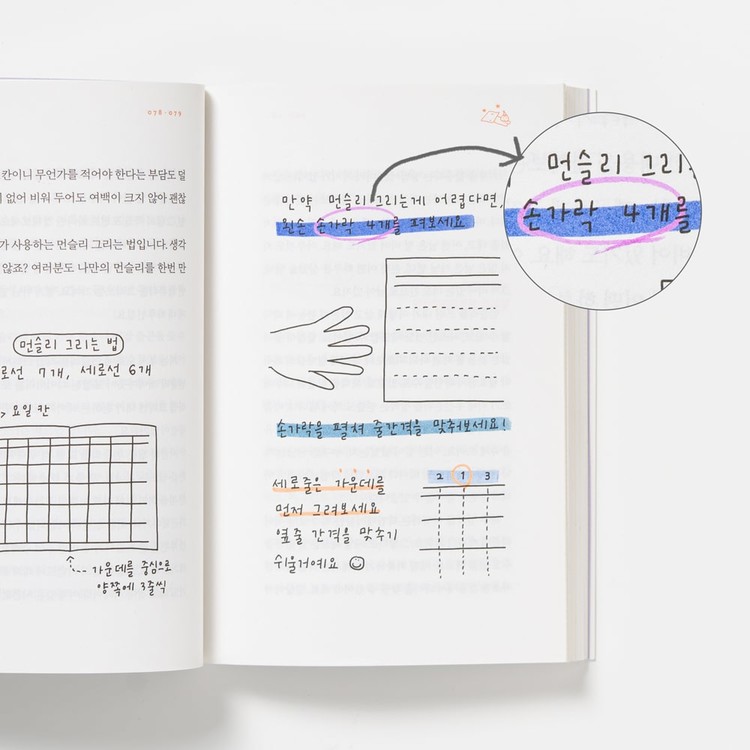 078 - 079
칸이니 무언가를 적어야 한다는 부담도 덜
없어 비워 두어도 여백이 크지 않아 괜찮
가 사용하는 먼슬리 그리는 법입니다. 생각
않죠? 여러분도 나만의 먼슬리를 한번 만
먼슬리 그리는 법
로선 7개, 세로선 6개
> 요일 칸
가운데를 중심으로
양쪽에 3줄씩
만약 먼슬리 그리는게 어렵다면,
왼손 손가락 4개를 펴보세요
먼슬리 그리
손가락 4개를
손가락을 펼쳐 줄간격을 맞춰보세요!
세로줄은 가운데를
먼저 그려보세요
옆줄 간격을 맞추기
쉬울거예요
2 1 3